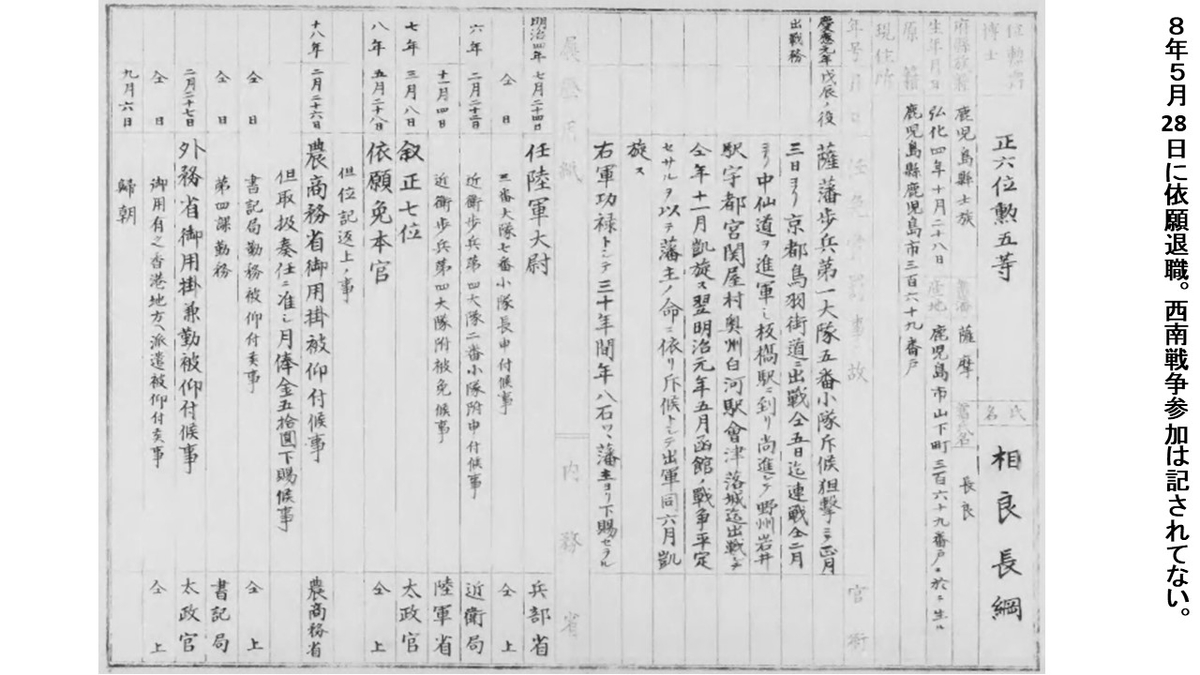 8年5月28日に依願退職。西南戦争参加は記されてない。
位勲爵
博士
正六位勲五等
氏名
相良長綱
府縣族籍
鹿児島縣士族
舊藩
薩摩
舊氏名
長良
生年月日
弘化四年十月二十八日
産地
鹿児島市山下町三百六十九番戸ニ於テ生ル
原籍
鹿児島縣鹿児島市三百六十九番戸
現住所
年号月日
任免賞罰事故
官衙
慶應元年戊辰ノ役
出戰務
薩藩歩兵第一大隊五番小隊斥候狙撃ニテ正月
三日ヨリ京都鳥羽街道ニ出戰仝五日迄連戰仝二月
ヨリ中仙道ヲ進軍シ板橋駅ニ到リ尚進シテ野州岩井
駅宇都宮関屋村奥州白河駅會津落城迄出戰シテ
仝年十一月凱旋ス翌明治元年五月函館ノ戰争平定
セサルヲ以テ藩主ノ命ニ依リ斥候トシテ出軍同六月凱
旋ス
右軍功禄トシテ三十年間年八石ツヽ藩主ヨリ下賜セラル
履歴用紙
内務省
明治四年
七月二十四日
任陸軍大尉
兵部省
仝日
三番大隊七番小隊長申付候事
仝上
六年
二月二十三日
近衛歩兵第四大隊二番小隊附申付候事
近衛局
十一月四日
近衛歩兵第四大隊附被免候事
陸軍省
七年
三月八日
叙正七位
太政官
八年
五月二十八日
依願免本官
仝上
但位記返上ノ事
十八年
二月二十六日
農商務省御用掛被仰付候事
農商務省
但取扱奏任ニ准シ月俸金五拾圓下賜候事
仝日
書記局勤務被仰付候事
仝上
仝日
第四課勤務
書記局
二月二十七日
外務省御用掛兼勤被仰付候事
太政官
仝日
御用有之香港地方ヘ派遣被仰付候事
仝上
九月六日
歸朝